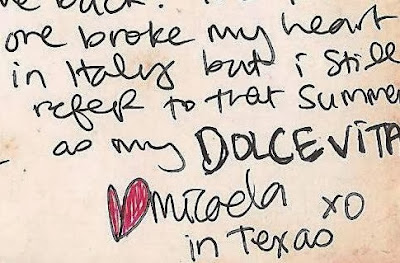 one broke my heart
in Italy but i still
refer to that Summer
as my DOLCE VITA
micaela xo
in Texas